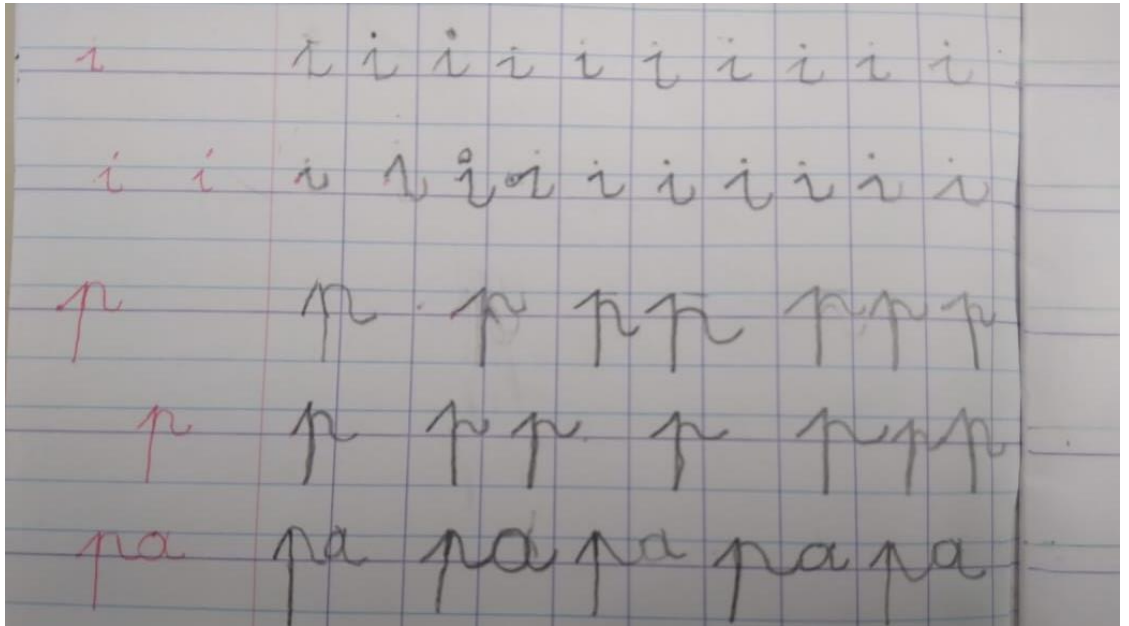 i i i i i i i i i i i
i i i i i i i i i i i i
p p p p p p p p
p p p p p p p p
pa pa pa pa pa pa